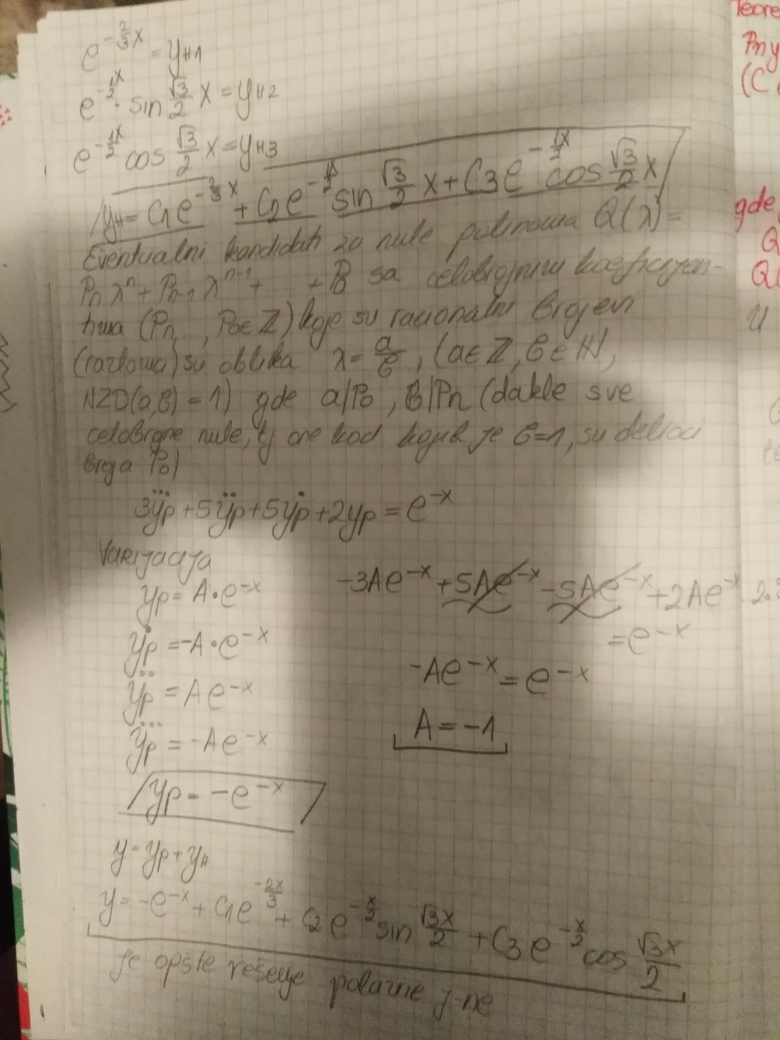 e^{-\frac{2}{3}x} = y_{H1}
e^{-\frac{1}{2}x} · sin \frac{\sqrt{3}}{2} x = y_{H2}
e^{-\frac{1}{2}x} cos \frac{\sqrt{3}}{2} x = y_{H3}
y_H = C_1 e^{-\frac{2}{3}x} + C_2 e^{-\frac{1}{2}x} sin \frac{\sqrt{3}}{2} x + C_3 e^{-\frac{1}{2}x} cos \frac{\sqrt{3}}{2} x
Eventualni kandidati za nule polinoma Q(λ) =
P_n λ^n + P_{n-1} λ^{n-1} + ... + P_0 sa celobrojnim koeficijen-
tima (P_n ..., P_0 ∈ Z) koje su racionalni brojevi
(razlomci) su oblika λ = \frac{a}{b}, (a ∈ Z, b ∈ N,
NZD(a,b) = 1) gde a|P_0, b|P_n (dakle sve
celobrojne nule, tj one kod kojih je b=1, su delioci
broja P_0)
3\dddot{y}_p + 5\ddot{y}_p + 5\dot{y}_p + 2y_p = e^{-x}
Varijacija
y_p = A · e^{-x}
\dot{y}_p = -A · e^{-x}
\ddot{y}_p = A e^{-x}
\dddot{y}_p = -A e^{-x}
-3Ae^{-x} + 5Ae^{-x} - 5Ae^{-x} + 2Ae^{-x}
= e^{-x}
-Ae^{-x} = e^{-x}
A = -1
y_p = -e^{-x}
y = y_p + y_H
y = -e^{-x} + C_1 e^{-\frac{2x}{3}} + C_2 e^{-\frac{x}{2}} sin \frac{\sqrt{3}x}{2} + C_3 e^{-\frac{x}{2}} cos \frac{\sqrt{3}x}{2}
je opšte rešenje polazne j-ne
Teore
Pn y
(C
gde
Q
Q(
U